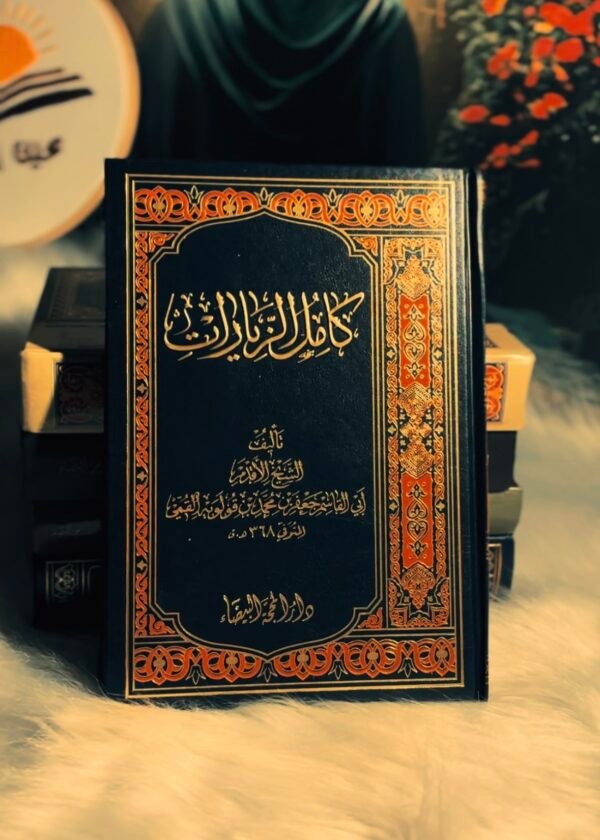 كَامِلُ الزِّيَارَاتِ
تَأليفُ
الشَّيْخِ الأَقْدَمِ
أَبي القَاسِم جَعْفَر بْن مُحَمَّد بْن قُولَوَيْهِ القُمِّي
المتوفى ٣٦٨ هـ.ق
دَار المحَجَّة البَيضَاء